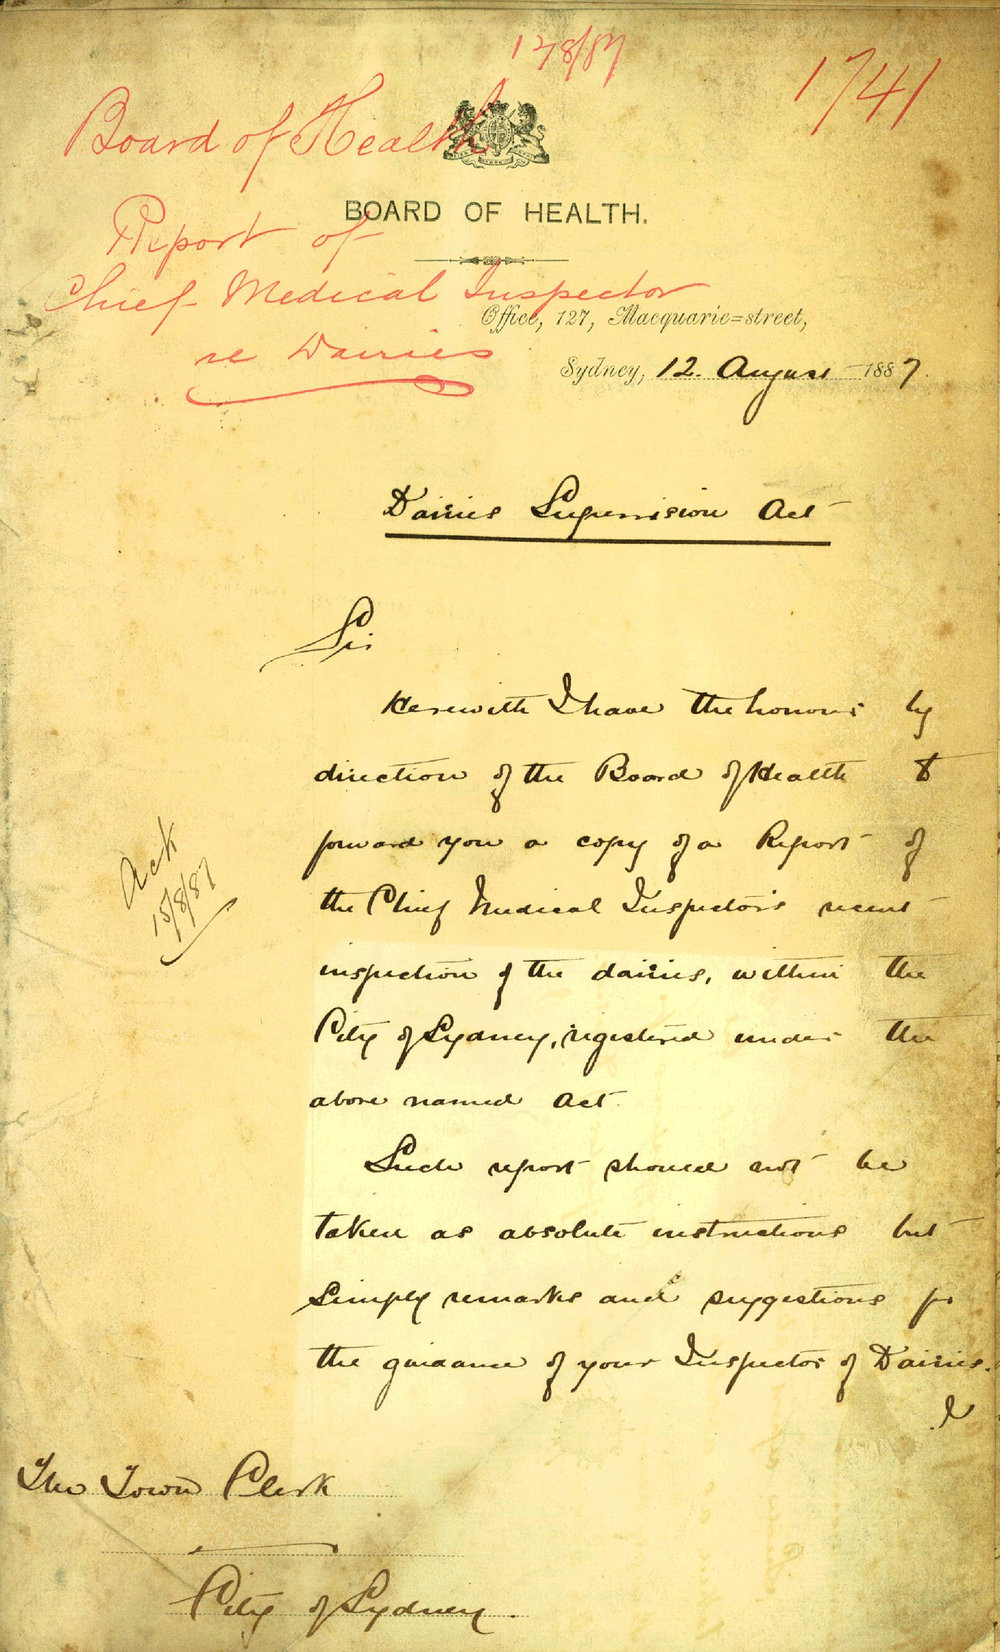 13/8/87
1741
Board of Health
BOARD OF HEALTH.
Report of
Chief Medical Inspector
re Dairies
Office, 127, Macquarie=street,
Sydney, 12. August 1887.
Dairies Supervision Act
Sir
Herewith I have the honour by
direction of the Board of Health to
forward you a copy of a Report of
the Chief Medical Inspector's recent
inspection of the dairies, within the
City of Sydney, registered under the
above named Act.
Such report should not be
taken as absolute instructions but
simply remarks and suggestions for
the guidance of your Inspector of Dairies.
Ack
15/8/87
The Town Clerk
City of Sydney.